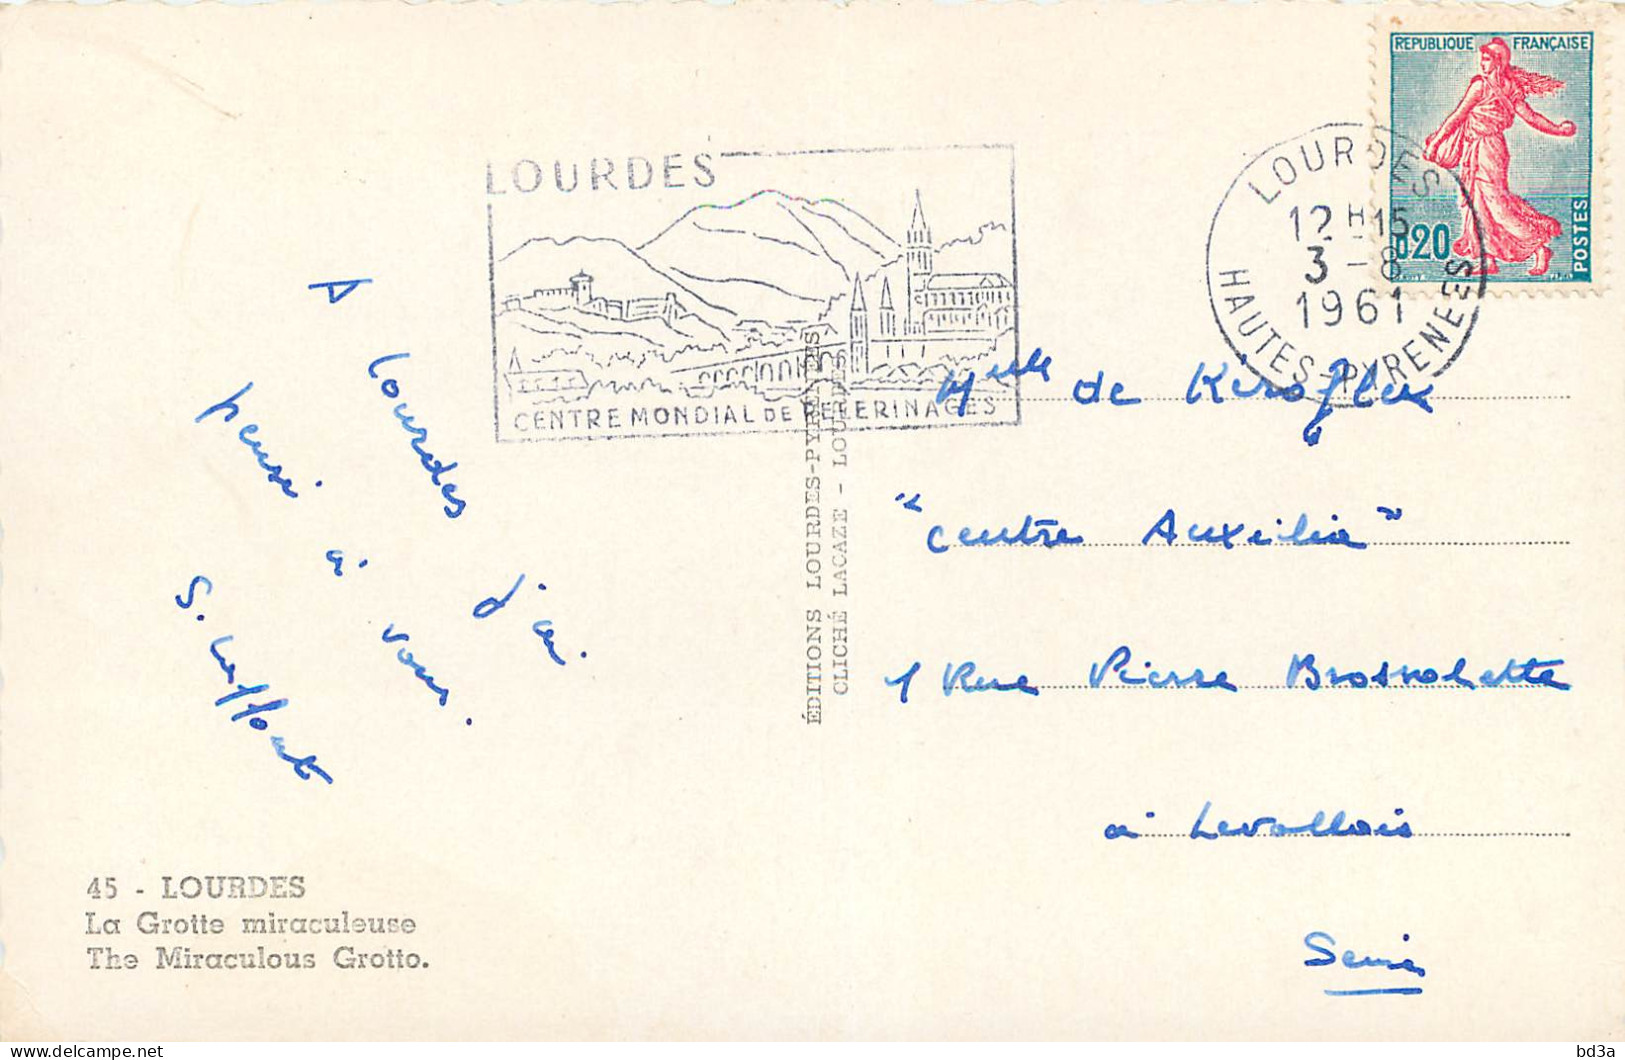 REPUBLIQUE FRANÇAISE
0,20
POSTES
LOURDES
12H15
3-8
1961
HAUTES-PYRENEES
LOURDES
CENTRE MONDIAL DE PELERINAGES
A Lourdes j'ai
pensé à vous.
S.
Mlle de
"Centre Auxilia"
1 Rue Pierre Brossolette
à Levallois
Seine
ÉDITIONS LOURDES-PYRÉNÉES
CLICHÉ LACAZE - LOURDES
45 - LOURDES
La Grotte miraculeuse
The Miraculous Grotto.
bd3a